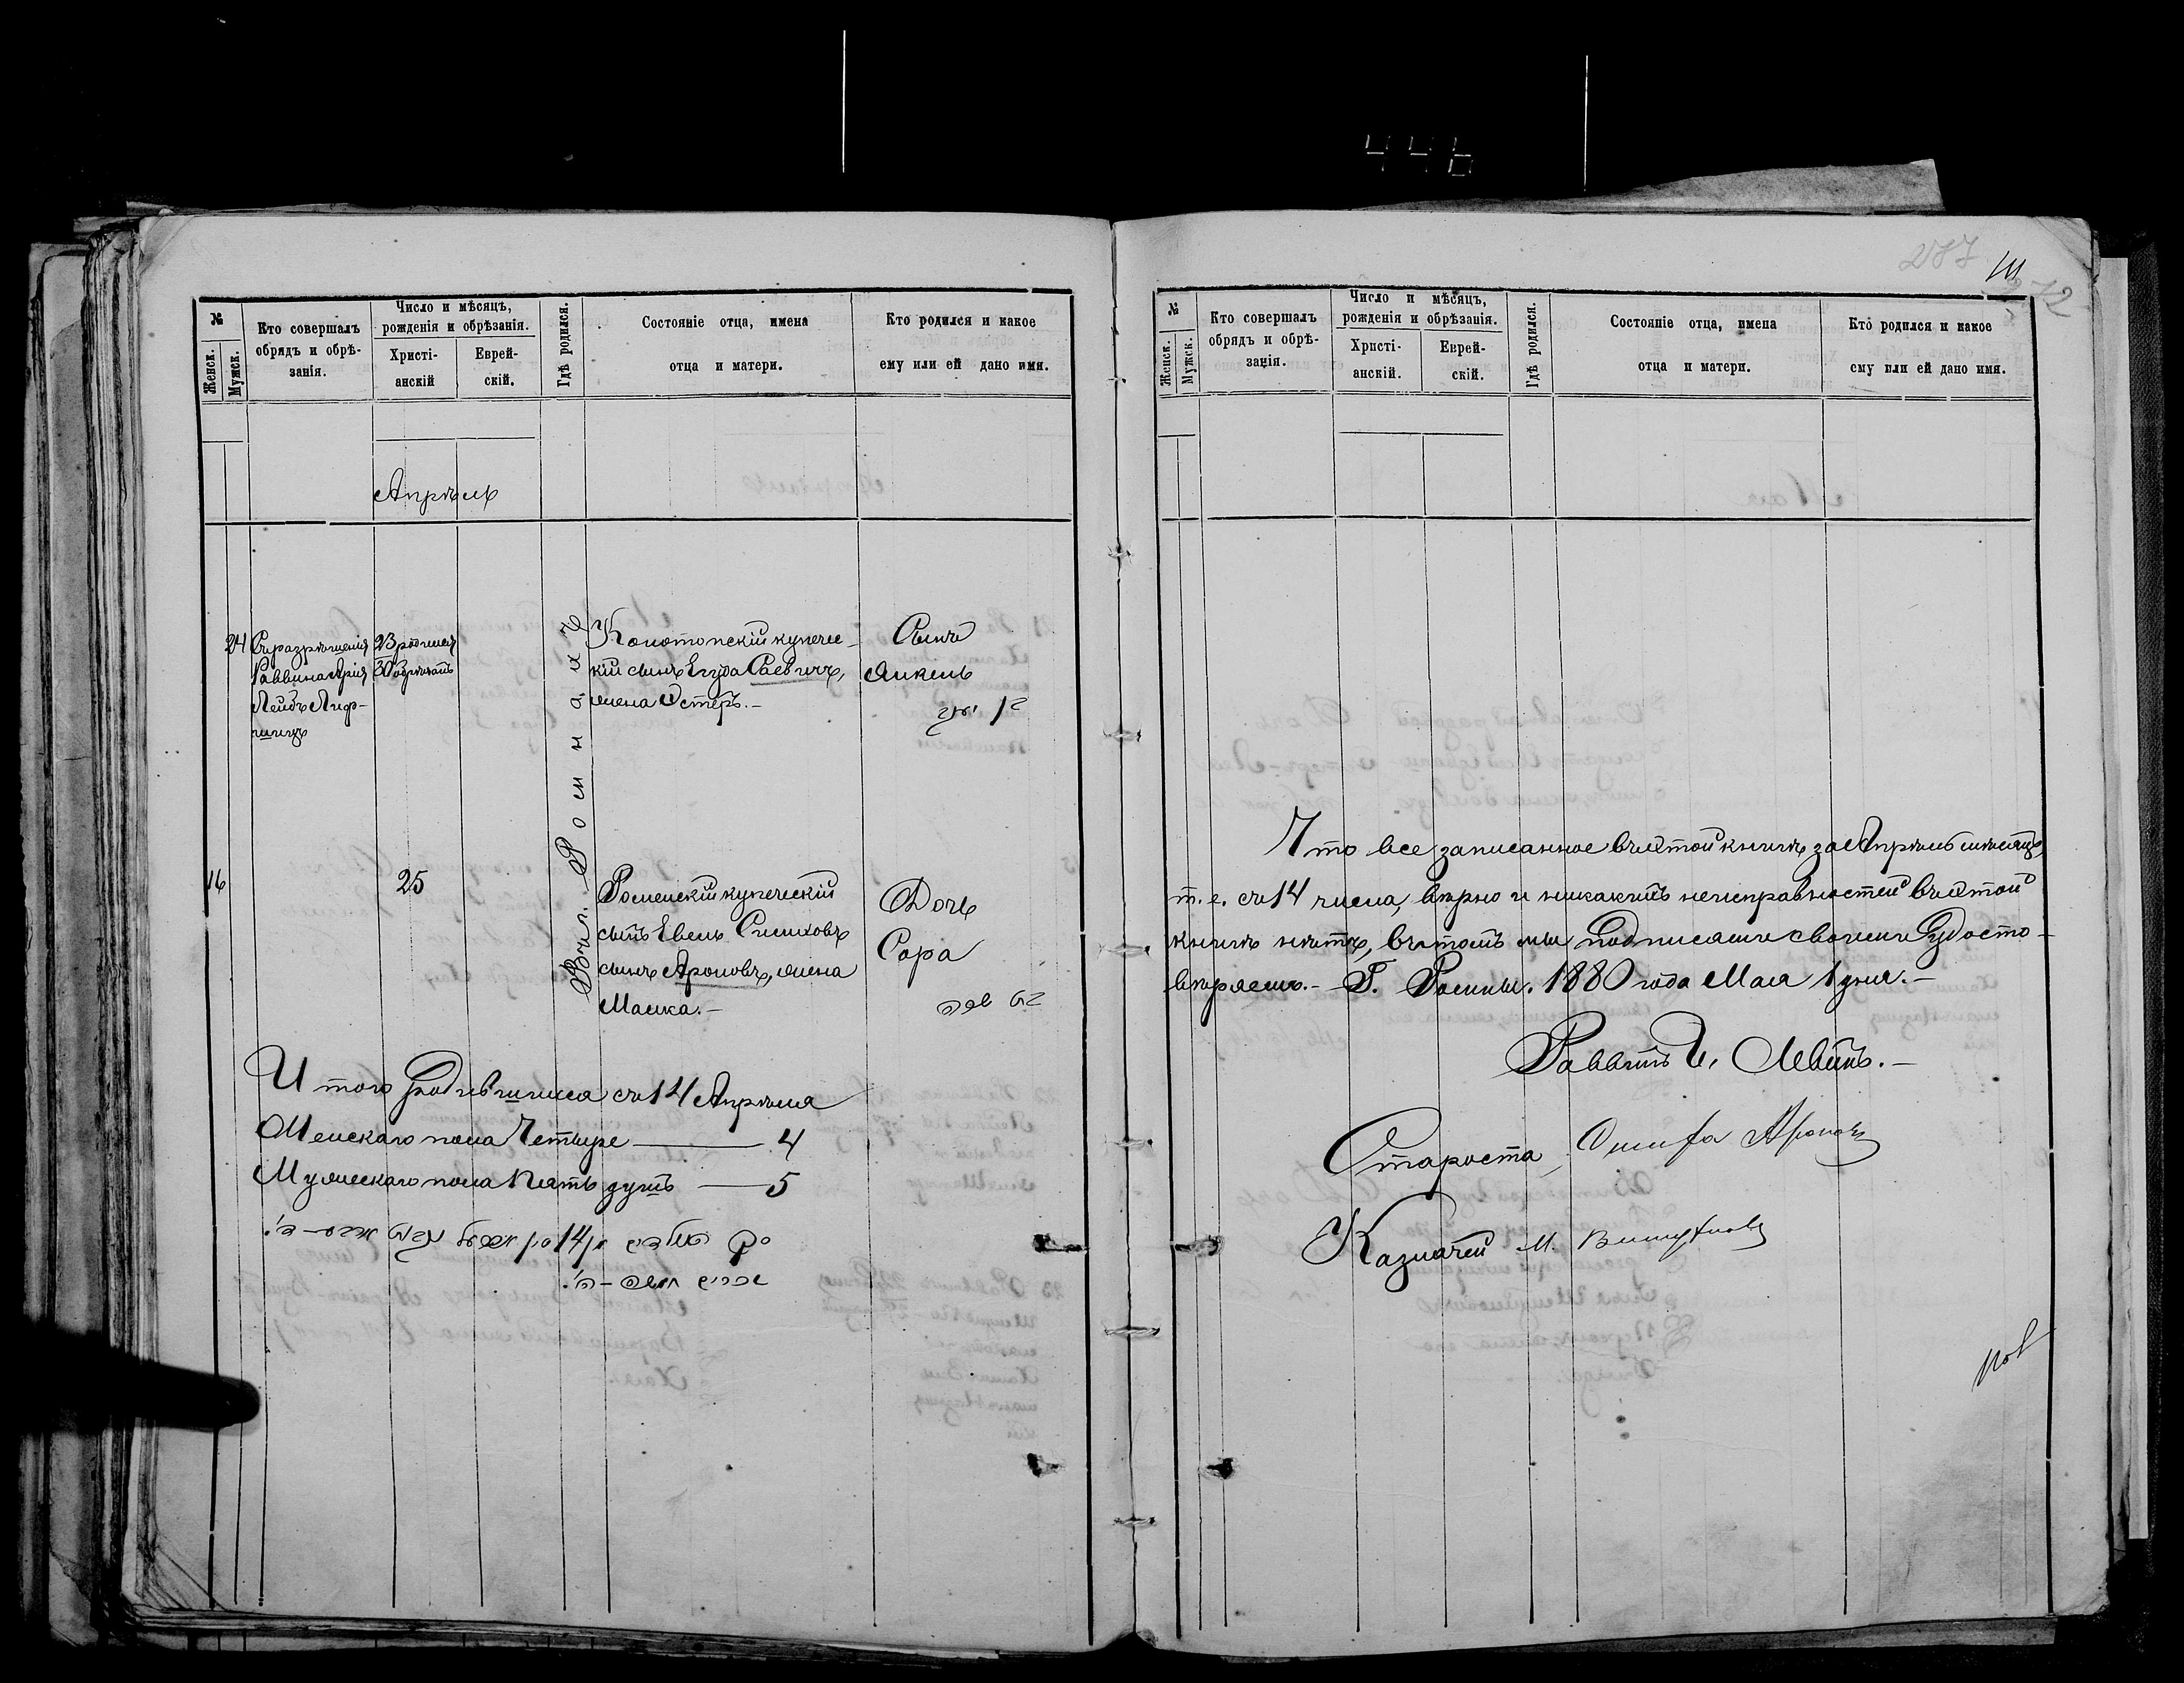 446
287
111
272
№
Женск.
Мужск.
Кто совершалъ
обрядъ и обрѣ-
занія.
Число и мѣсяцъ,
рожденія и обрѣзанія.
Христі-
анскій
Еврей-
скій.
Гдѣ родился.
Состояніе отца, имена
отца и матери.
Кто родился и какое
ему или ей дано имя.
Апрѣль
24
Съ разрѣшенія
Раввина Арія
Лейбъ Лиф-
шицъ
23 родился
30 обрѣзанъ
Въ г. Ромнахъ
Конотопскій купечес-
кій сынъ Егуда Раевичъ,
жена Эстеръ.-
Сынъ
Янкель
בן יעקב
16
25
Роменскій купеческій
сынъ Евель Симховъ
сынъ Ароновъ, жена
Маска.-
Дочь
Сора
בת שרה
Итого родившихся съ 14 Апрѣля
Женскаго пола Четыре — 4
Мужескаго пола Пять душъ — 5
№
Женск.
Мужск.
Кто совершалъ
обрядъ и обрѣ-
занія.
Число и мѣсяцъ,
рожденія и обрѣзанія.
Христі-
анскій.
Еврей-
скій.
Гдѣ родился.
Состояніе отца, имена
отца и матери.
Кто родился и какое
ему или ей дано имя.
Что все записанное въ этой книгѣ за Апрѣль мѣсяцъ,
т. е. съ 14 числа, вѣрно и никакихъ неисправностей въ этой
книгѣ нѣтъ, въ томъ мы подписями своими Удосто-
вѣряемъ.- Г. Ромны. 1880 года Мая 1 дня.-
Раввинъ І. Левинъ.-
Староста
Казначей М.